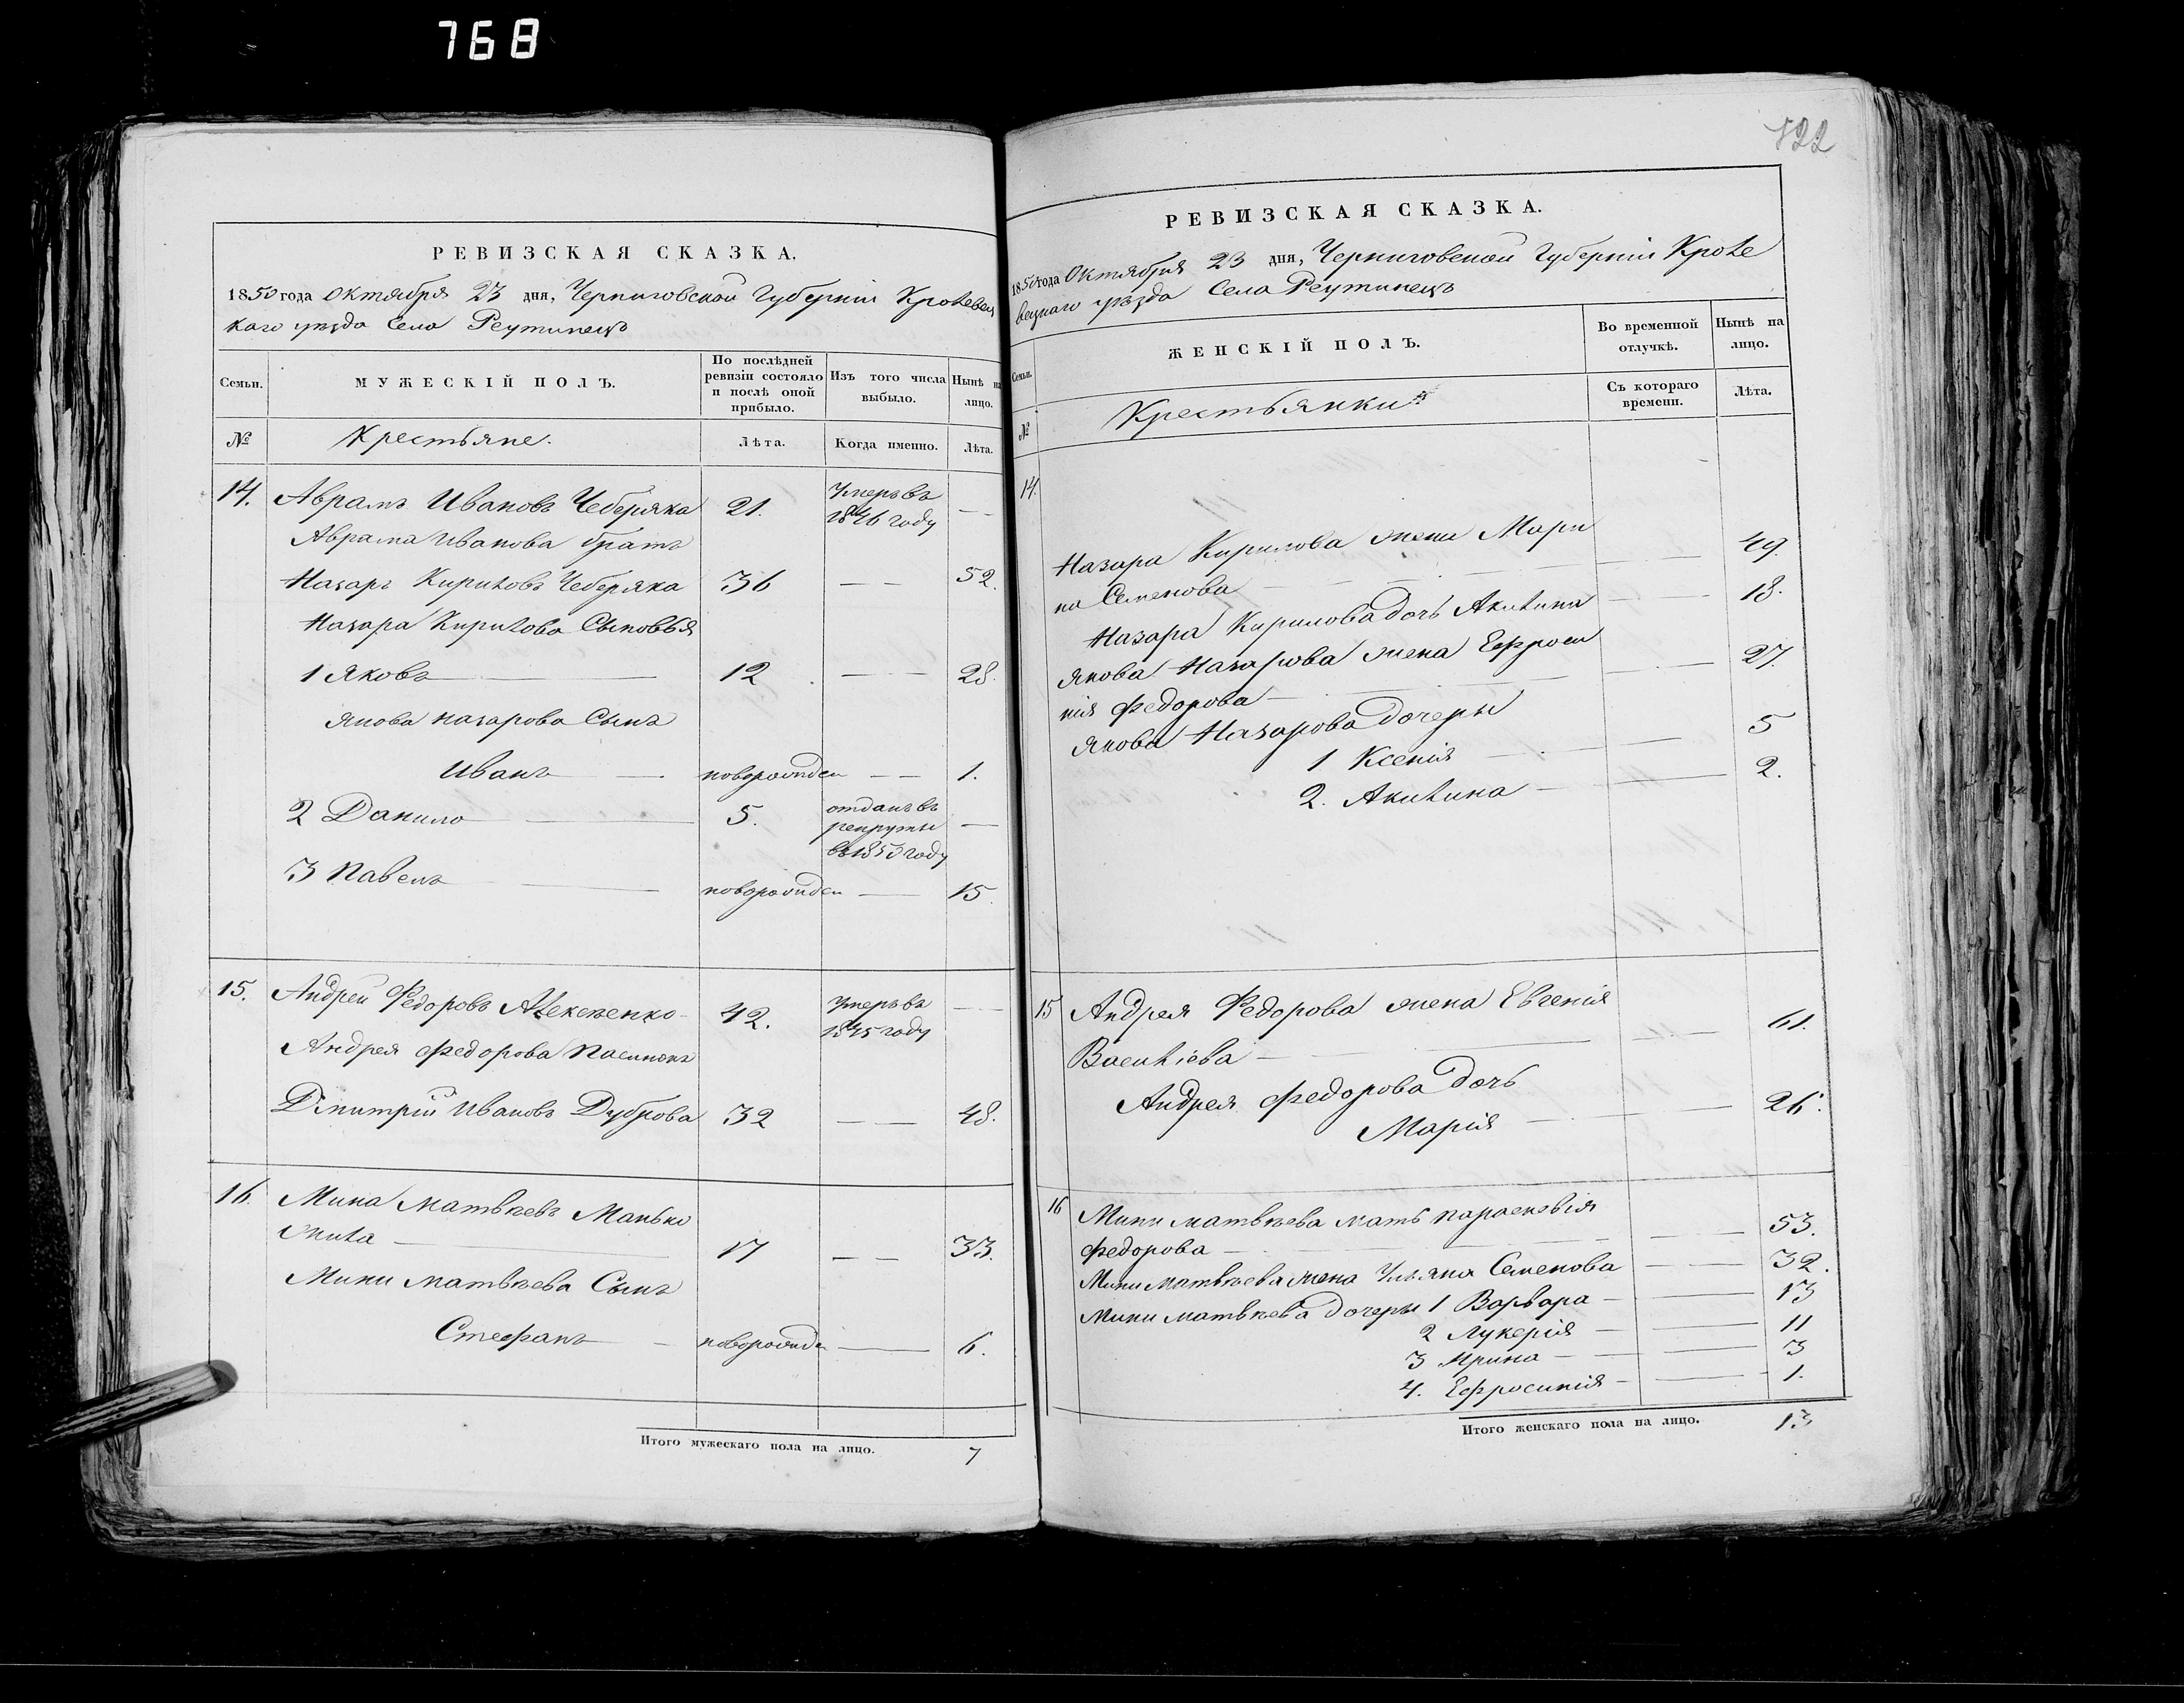 768
РЕВИЗСКАЯ СКАЗКА.
1850 года Октября 23 дня, Черниговской Губерніи Кролевец
каго уѣзда Села Реутинецъ
Семьи.
МУЖЕСКІЙ ПОЛЪ.
По послѣдней ревизіи состояло и послѣ оной прибыло.
Изъ того числа выбыло.
Нынѣ на лицо.
№
Крестьяне.
Лѣта.
Когда именно.
Лѣта.
14. Аврамъ Ивановъ Чеберяка 21. Умеръ въ 1846 году —
Аврама Иванова братъ
Назаръ Кириловъ Чеберяка 36 — — 52.
Назара Кирилова Сыновья
1 Яковъ — 12 — — 28.
Якова Назарова Сынъ
Иванъ — новорожден — — 1.
2 Данило — 5. отданъ въ рекруты въ 1850 году —
3 Павелъ — новорожден — 15
15. Андрей Федоровъ Алексѣенко 42. Умеръ въ 1845 году —
Андрея Федорова пасынокъ
Дмитрій Ивановъ Дуброва 32 — — 48.
16. Мина Матвѣевъ Манько
— 17 — — 33.
Мини Матвѣева Сынъ
Стефанъ — новорожде — 6.
Итого мужескаго пола на лицо. 7
122
РЕВИЗСКАЯ СКАЗКА.
1850 года Октября 23 дня, Черниговской Губерніи Кроле
вецкаго уѣзда Села Реутинецъ
Семьи.
ЖЕНСКІЙ ПОЛЪ.
Во временной отлучкѣ.
Нынѣ на лицо.
№
Крестьянки
Съ котораго времени.
Лѣта.
14.
Назара Кирилова жена Мари
на Семенова — — 49.
Назара Кирилова дочь Акилина — — 18.
Якова Назарова жена Ефроси
нія Федорова — — 27.
Якова Назарова дочеры
1 Ксенія — — 5
2. Акилина — — 2.
15 Андрея Федорова жена Евгенія
Василіева — — 61.
Андрея Федорова дочь
Марія — — 26.
16 Мини Матвѣева мать Параскевія
Федорова — — 53.
Мини Матвѣева жена Ульяна Семенова — — 32.
Мини Матвѣева дочеры 1 Варвара — — 13
2 Лукерія — — 11
3 Ирина — — 3
4. Ефросинія — — 1.
Итого женскаго пола на лицо. 13